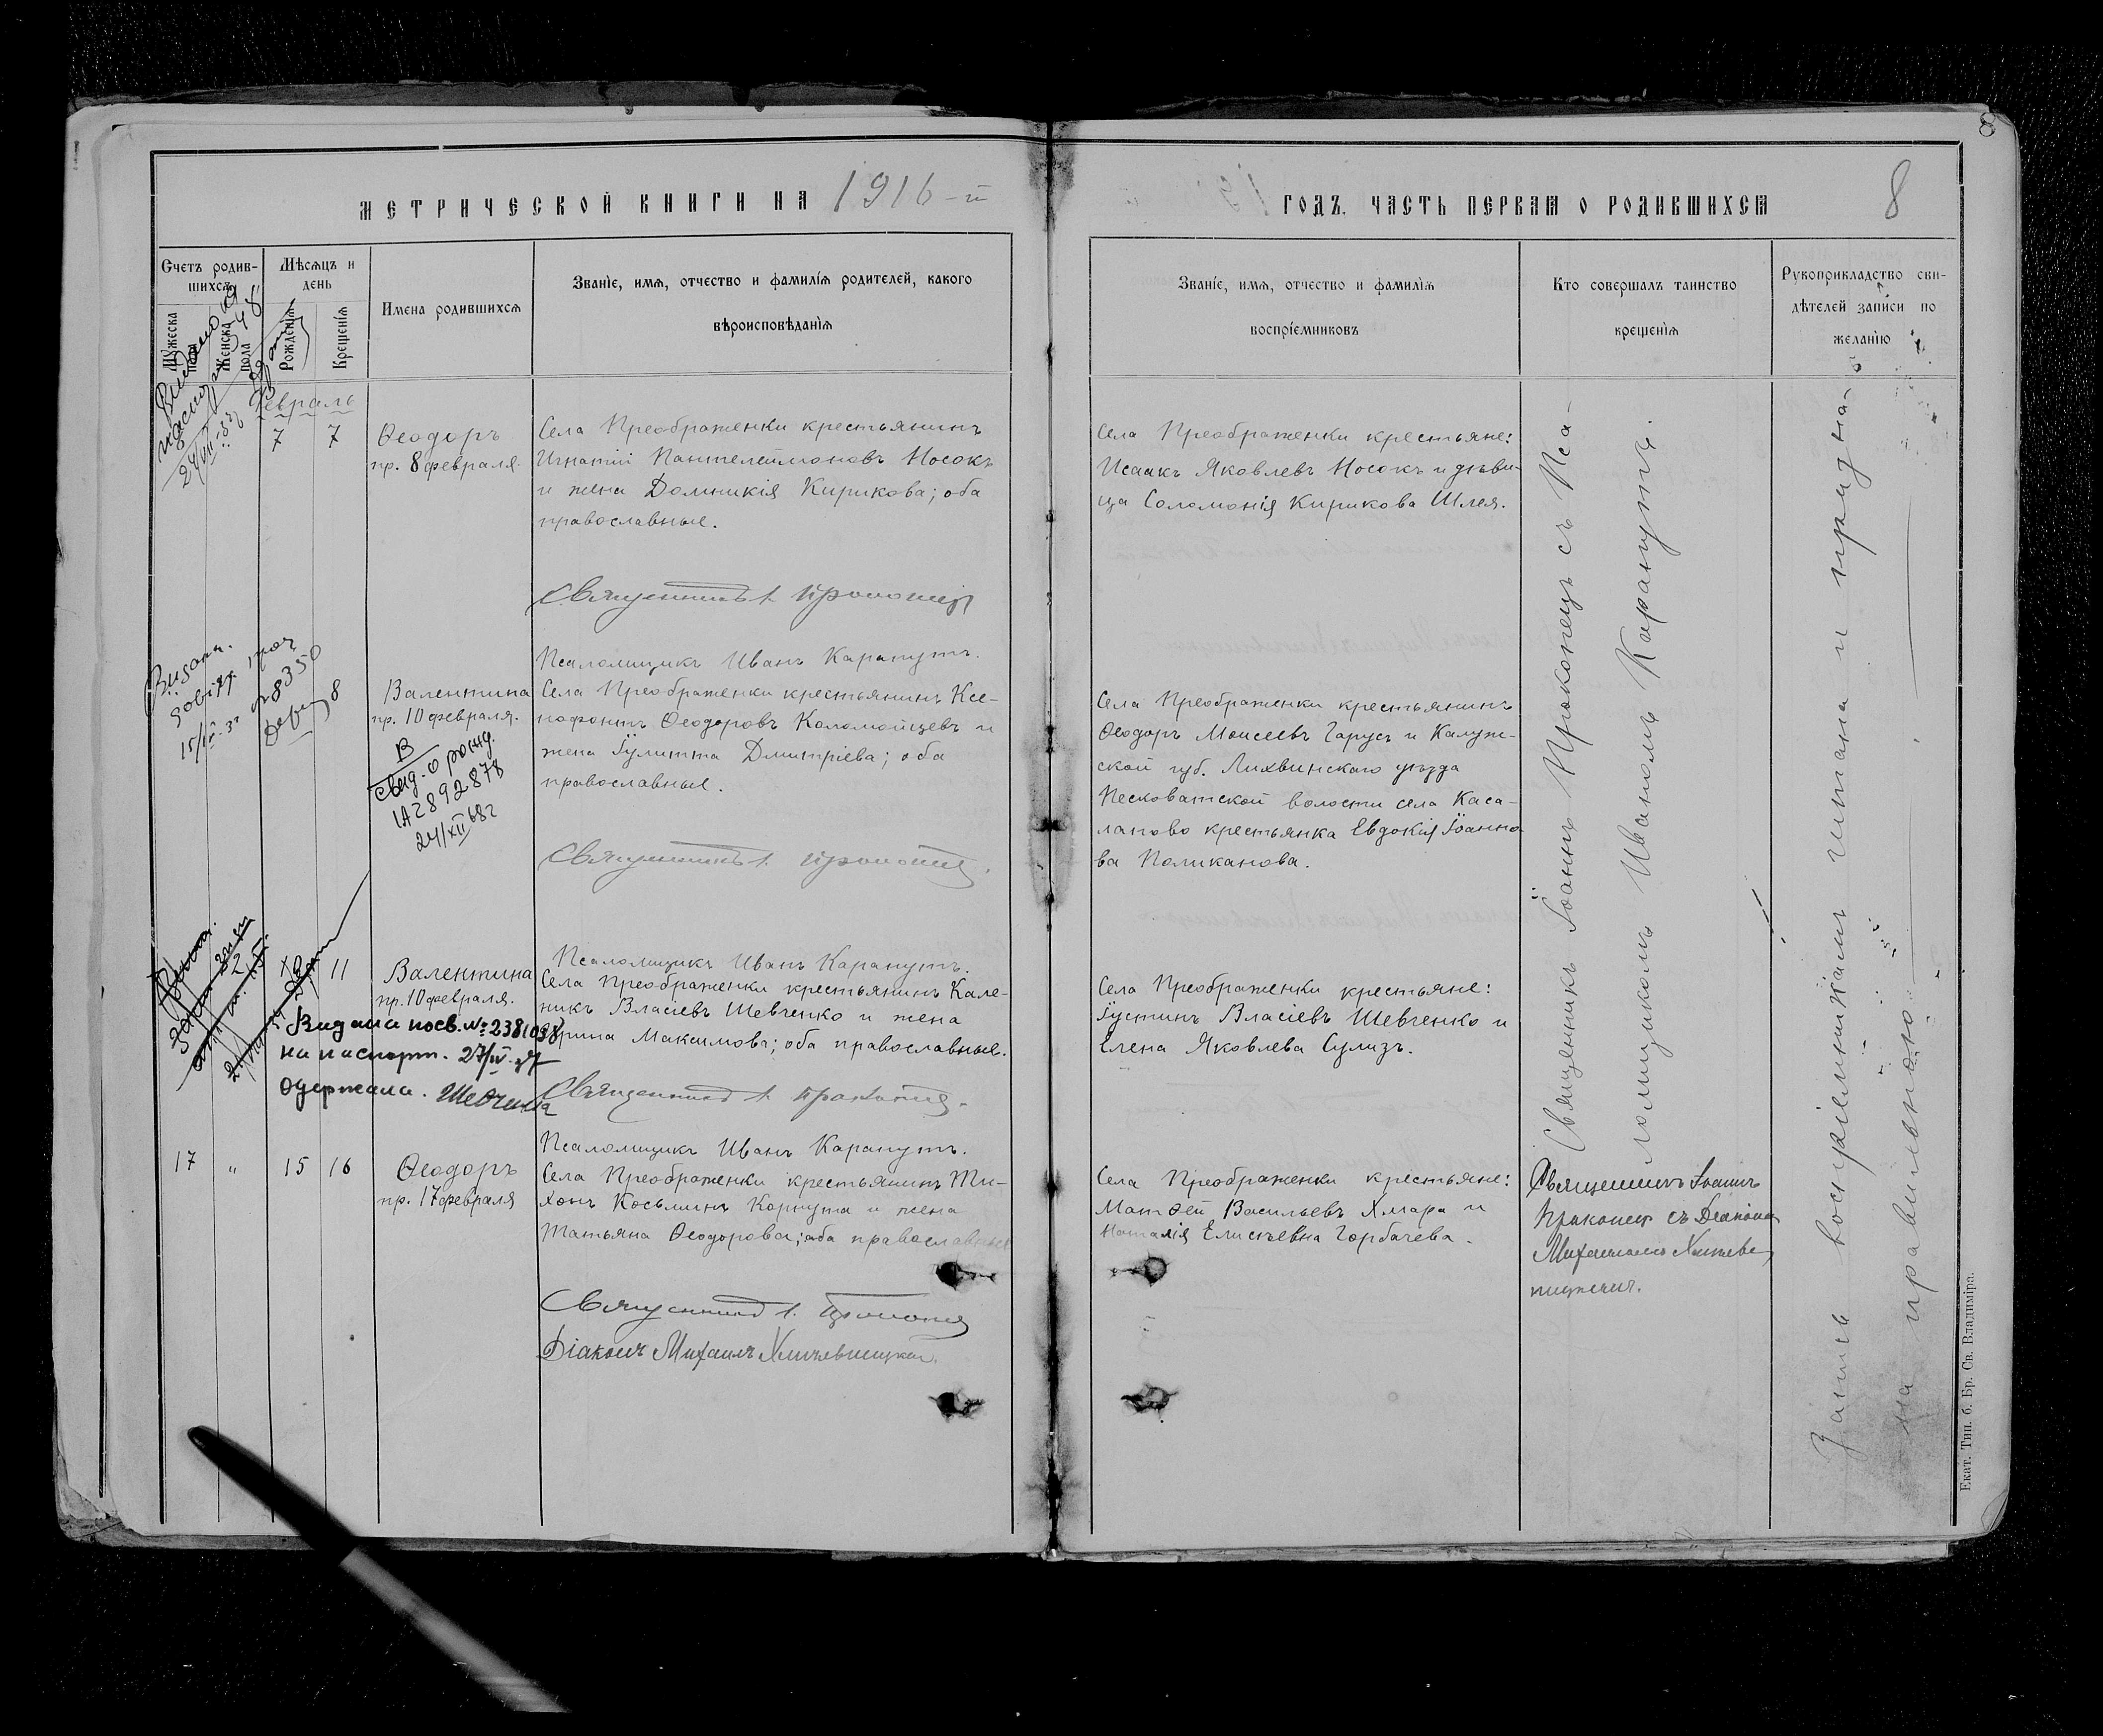 МЕТРИЧЕСКОЙ КНИГИ НА 1916-й
ГОДЪ, ЧАСТЬ ПЕРВАЯ О РОДИВШИХСЯ
8
8
Счетъ родив-
шихся
Мужеска
пола
Женска
пола
Мѣсяцъ и
день
Рожденія
Крещенія
Имена родившихся
Званіе, имя, отчество и фамилія родителей, какого
вѣроисповѣданія
Званіе, имя, отчество и фамилія
воспріемниковъ
Кто совершалъ таинство
крещенія
Рукоприкладство сви-
дѣтелей записи по
желанію
Февраль
7
7
Ѳеодоръ
пр. 8 февраля.
Села Преображенки крестьянинъ
Игнатій Пантелеймоновъ Носокъ
и жена Домникія Кирикова; оба
православные.
Села Преображенки крестьяне:
Исаакъ Яковлевъ Носокъ и дѣви-
ца Соломонія Кирикова Шлея.
Священникъ І. Прокопец
Псаломщикъ Иванъ Карапутъ.
8
Валентина
пр. 10 февраля.
Села Преображенки крестьянинъ Ксе-
нофонтъ Ѳеодоровъ Коломойцевъ и
жена Іулитта Дмитріева; оба
православные.
Села Преображенки крестьянинъ
Ѳеодоръ Моисеевъ Гарусъ и Калуж-
ской губ. Лихвинскаго уѣзда
Песковатской волости села Каса-
ланово крестьянка Евдокія Іоанно-
ва Поликанова.
8350
В
свид. о рожд.
1А2892878
24/XII 68г
Священникъ І. Прокопец.
Псаломщикъ Иванъ Карапутъ.
11
Валентина
пр. 10 февраля.
Села Преображенки крестьянинъ Кале-
никъ Власіевъ Шевченко и жена
Ирина Максимова; оба православные.
Села Преображенки крестьяне:
Іустинъ Власіевъ Шевченко и
Елена Яковлева Сулизъ.
Видана посв. № 2381098
на паспорт. 27/IV-37
Одержала. Шевченко
Священникъ І. Прокопец.
Псаломщикъ Иванъ Карапутъ.
17 " 15 16
Ѳеодоръ
пр. 17 февраля
Села Преображенки крестьянинъ Ти-
хонъ Косьминъ Корнута и жена
Татьяна Ѳеодорова; оба православные
Села Преображенки крестьяне:
Матѳей Васильевъ Хмара и
Наталія Елисѣевна Горбачева.
Священникъ Іоаннъ
Прокопец съ Діаконом
Михаиломъ
Священникъ І. Прокопец
Діаконъ Михаилъ
Священникъ Іоаннъ Прокопецъ съ Пса-
ломщикомъ Иваномъ Карапутъ.
Запись воспріемникамъ читана и призна-
на правильною.
Екат. Тип. б. Бр. Св. Владиміра.